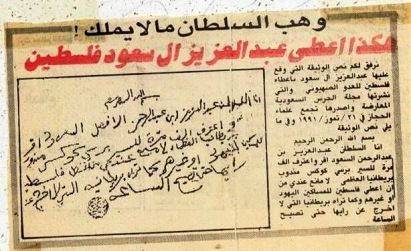 وهب السلطان ما لا يملك !
هكذا اعطى عبد العزيز ال سعود فلسطين
نرفق لكم نص الوثيقة التي وقع
عليها عبدالعزيز آل سعود بأعطاء
فلسطين للعدو الصهيوني والتي
نشرتها مجلة الحرس السعودية
المعارضة واصدرها تجمع علماء
الحجاز في ٢١/تموز/١٩٩١ وفي
يلي نص الوثيقة
بسم الله الرحمن الرحيم
انا السلطان عبدالعزيز بن
عبدالرحمن السعود اقر واعترف الف
مرة للسير برسي كوكس مندوب
بريطانيا العظمى لا مانع عندي من
ان اعطي فلسطين للمساكين اليهود
او غيرهم وكما تراه بريطانيا التي لا
اخرج عن رايها حتى تصيح
الساعة
بسم الله الرحمن الرحيم
انا السلطان عبد العزيز بن عبد الرحمن الفيصل السعود اقر
و اعترف الف مرة للسير برسي كوكس مندوب
بريطانيا العظمى لا مانع عندي من اعطي فلسطين
للمساكين اليهود او غيرهم وكما تراه بريطانيا التي لا اخرج عن
رايها حتى تصيح الساعة